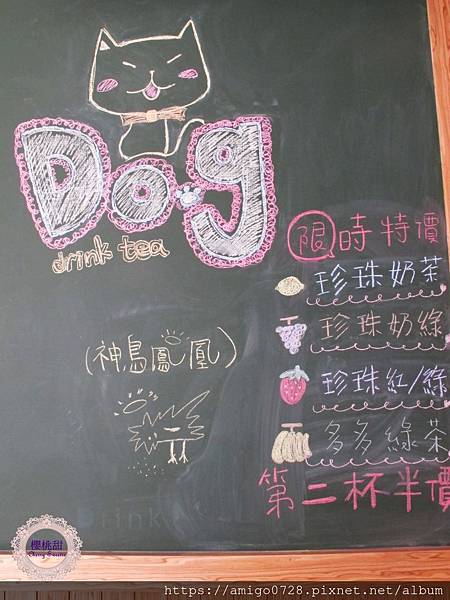 Do.g
drink tea
限時特價
珍珠奶茶
珍珠奶綠
珍珠紅/綠
多多綠茶
第二杯半價
(神鳥鳳凰)
Drink
櫻桃甜
https://amigo0728.pixnet.net/album